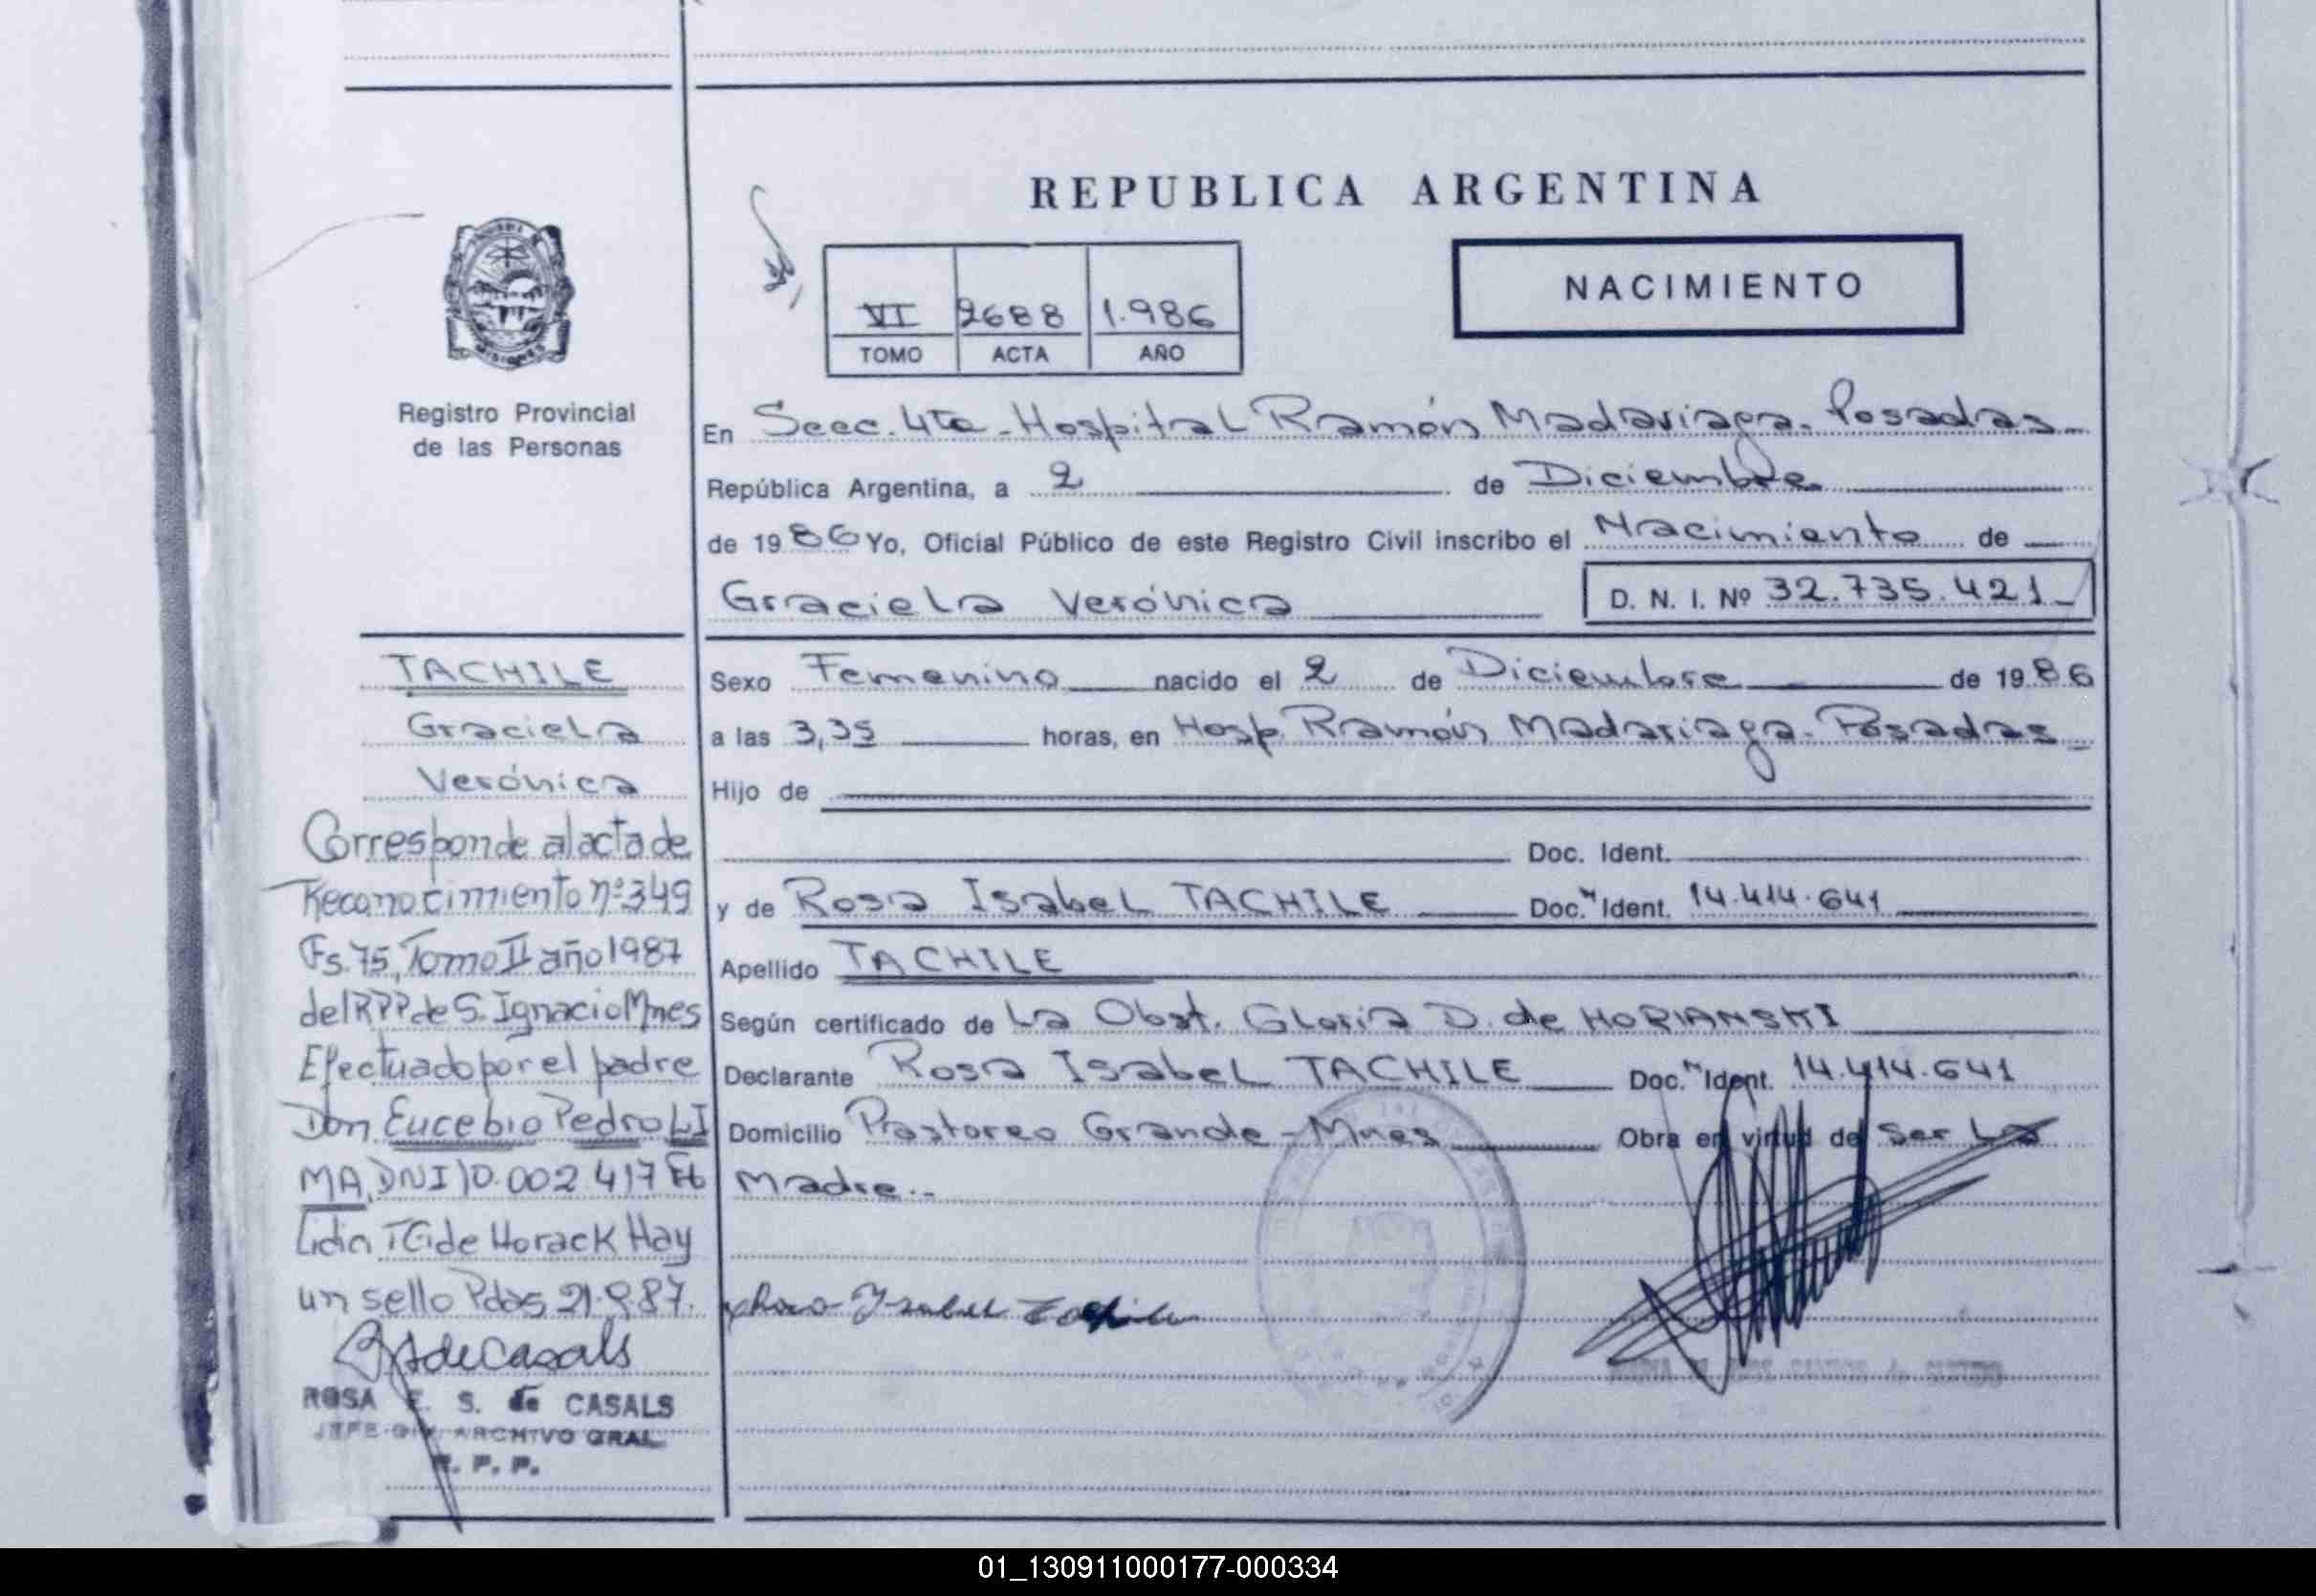 REPUBLICA ARGENTINA
NACIMIENTO
VI 2688 1.986
TOMO ACTA AÑO
Registro Provincial
de las Personas
En Secc. 4ta - Hospital Ramón Madariaga. Posadas
República Argentina, a 2 de Diciembre
de 1986 Yo, Oficial Público de este Registro Civil inscribo el Nacimiento de
Graciela Verónica
D. N. I. Nº 32.735.421
TACHILE
Graciela
Verónica
Corresponde al acta de
Reconocimiento nº 349
Fs. 75, Tomo II año 1987
del RPP de S. Ignacio Mnes
Efectuado por el padre
Don Eucebio Pedro LI
MA, DNI 10.002 417
Lidia de Horack Hay
un sello Pdas 21.9.87.
ROSA E. S. de CASALS
JEFE DIV. ARCHIVO GRAL.
R. P. P.
Sexo Femenino nacido el 2 de Diciembre de 1986
a las 3,35 horas, en Hosp. Ramón Madariaga. Posadas
Hijo de
Doc. Ident.
y de Rosa Isabel TACHILE Doc. Ident. 14.414.641
Apellido TACHILE
Según certificado de La Obst. Gloria D. de HORIANSKI
Declarante Rosa Isabel TACHILE Doc. Ident. 14.414.641
Domicilio Pastoreo Grande - Mnes Obra en virtud de Ser La
Madre.-
Rosa Isabel Tachile
01_130911000177-000334